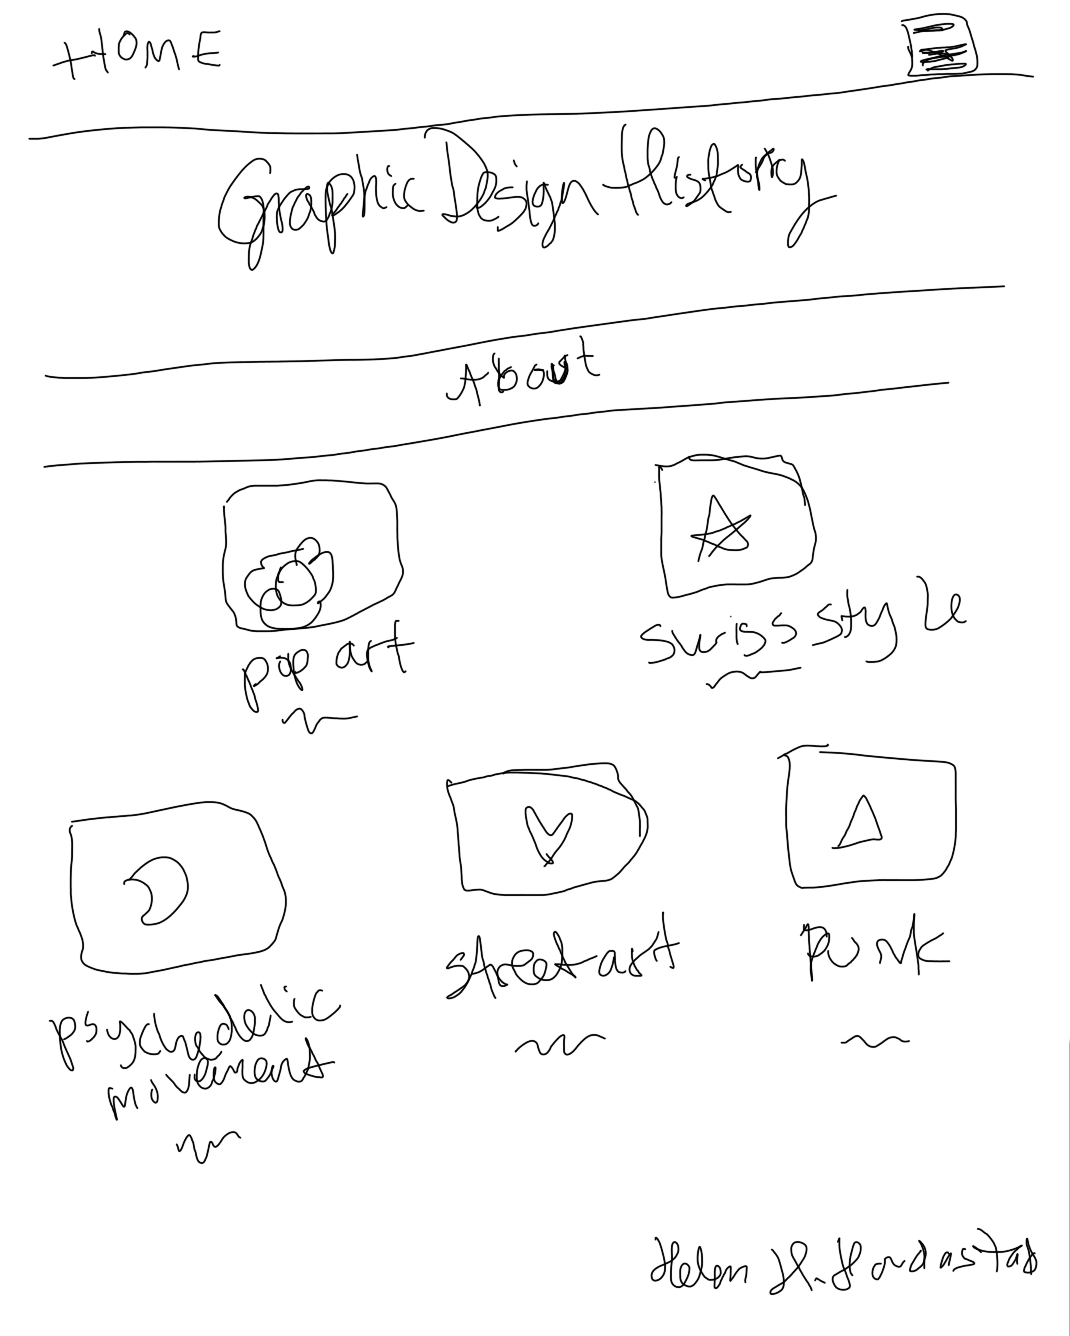 HOME
Graphic Design History
About
pop art
swiss style
psychedelic
movement
street art
punk
Helen H.